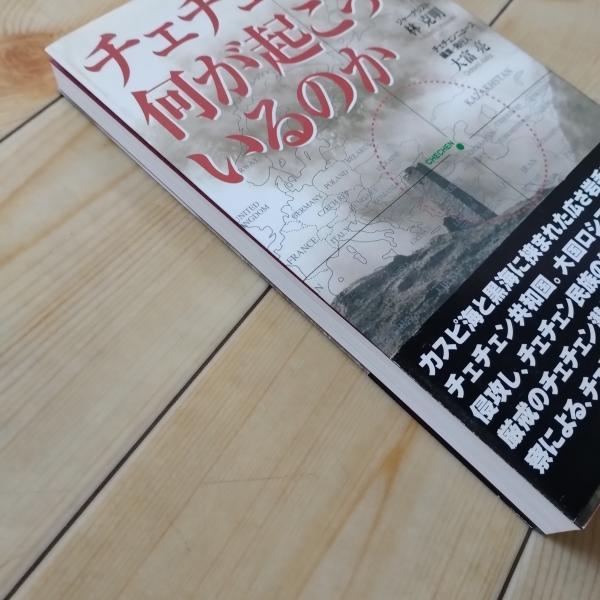 チェチェ
何が起こっ
いるのか
ジャーナリスト
林 克明
チェチェンニュース
大富 亮
KAZAKHSTAN
CHECHEN
IRAN
UNITED
KINGDOM
GERMANY
POLAND
CZECH
FRANCE
ITALY
カスピ海と黒海に挟まれた広さ岩手
チェチェン共和国。大国ロシア
侵攻し、チェチェン民族の
厳戒のチェチェン潜
察による、チェ